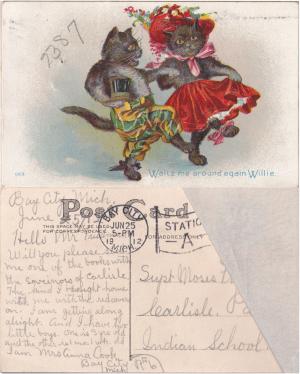 2387
Waltz me around again Willie.
Bay City, Mich.
June 25,
Post Card
THIS SPACE MAY BE USED
FOR CORRESPONDENCE
BAY CITY
JUN 25
5-PM
1912
MICH.
STATION
A
Hello Mr
Will you please send
me one of the books with
the Souvenirs of Carlisle
I thought home
with me with the
on. I am getting along
alright. And I have two
little boys. One is 3 yrs old
and the other
I am Mrs Anna Cook
Bay City
Mich
Supt Moses
Carlisle, Pa
Indian School